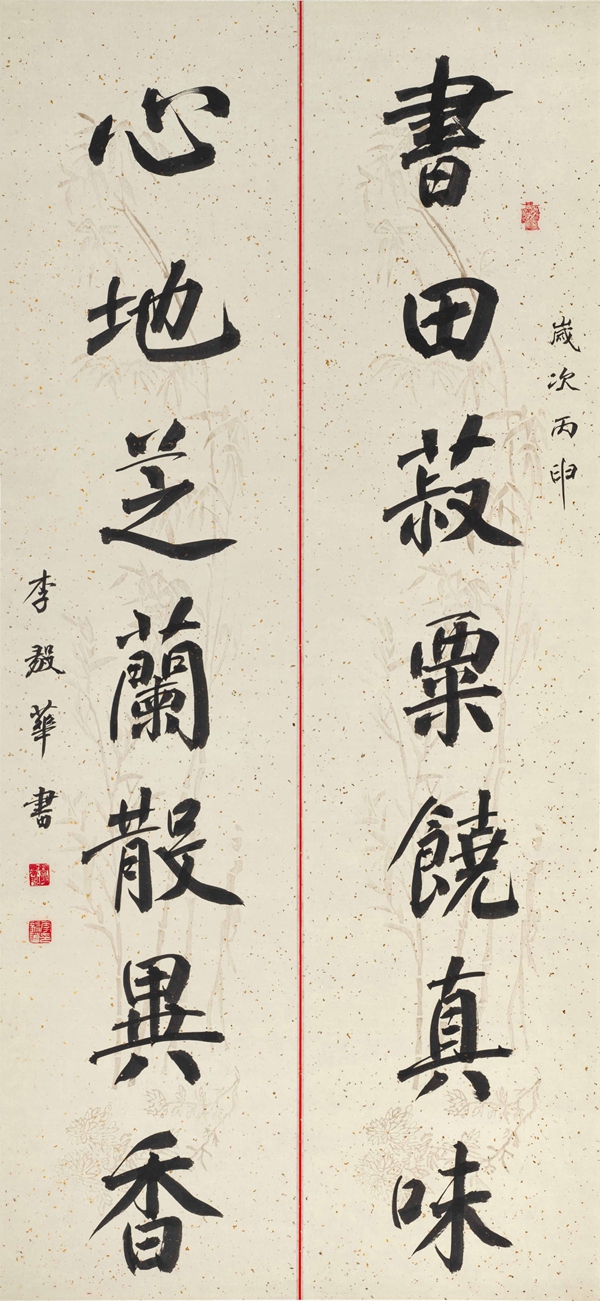 書田菽粟饒真味
歲次丙申
心地芝蘭散異香
李毅華書